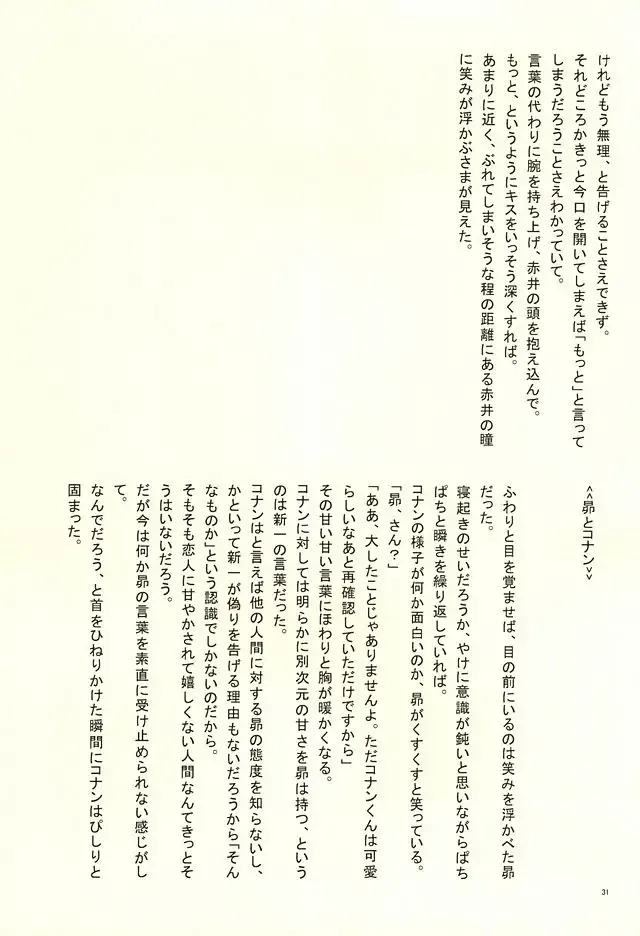 けれどもう無理、と告げることさえできず。
それどころかきっと今口を開いてしまえば「もっと」と言って
しまうだろうことさえわかっていて。
言葉の代わりに腕を持ち上げ、赤井の頭を抱え込んで。
もっと、というようにキスをいっそう深くすれば。
あまりに近く、ぶれてしまいそうな程の距離にある赤井の瞳
に笑みが浮かぶさまが見えた。
<<昴とコナン>>
ふわりと目を覚ませば、目の前にいるのは笑みを浮かべた昴
だった。
寝起きのせいだろうか、やけに意識が鈍いと思いながらぱち
ぱちと瞬きを繰り返していれば。
コナンの様子が何か面白いのか、昴がくすくすと笑っている。
「昴、さん?」
「ああ、大したことじゃありませんよ。ただコナンくんは可愛
らしいなあと再確認していただけですから」
その甘い甘い言葉にほわりと胸が暖かくなる。
コナンに対しては明らかに別次元の甘さを昴は持つ、という
のは新一の言葉だった。
コナンはと言えば他の人間に対する昴の態度を知らないし、
かといって新一が偽りを告げる理由もないだろうから「そん
なものか」という認識でしかないのだから。
そもそも恋人に甘やかされて嬉しくない人間なんてきっとそ
うはいないだろう。
だが今は何か昴の言葉を素直に受け止められない感じがし
て。
なんでだろう、と首をひねりかけた瞬間にコナンはぴしりと
固まった。
31